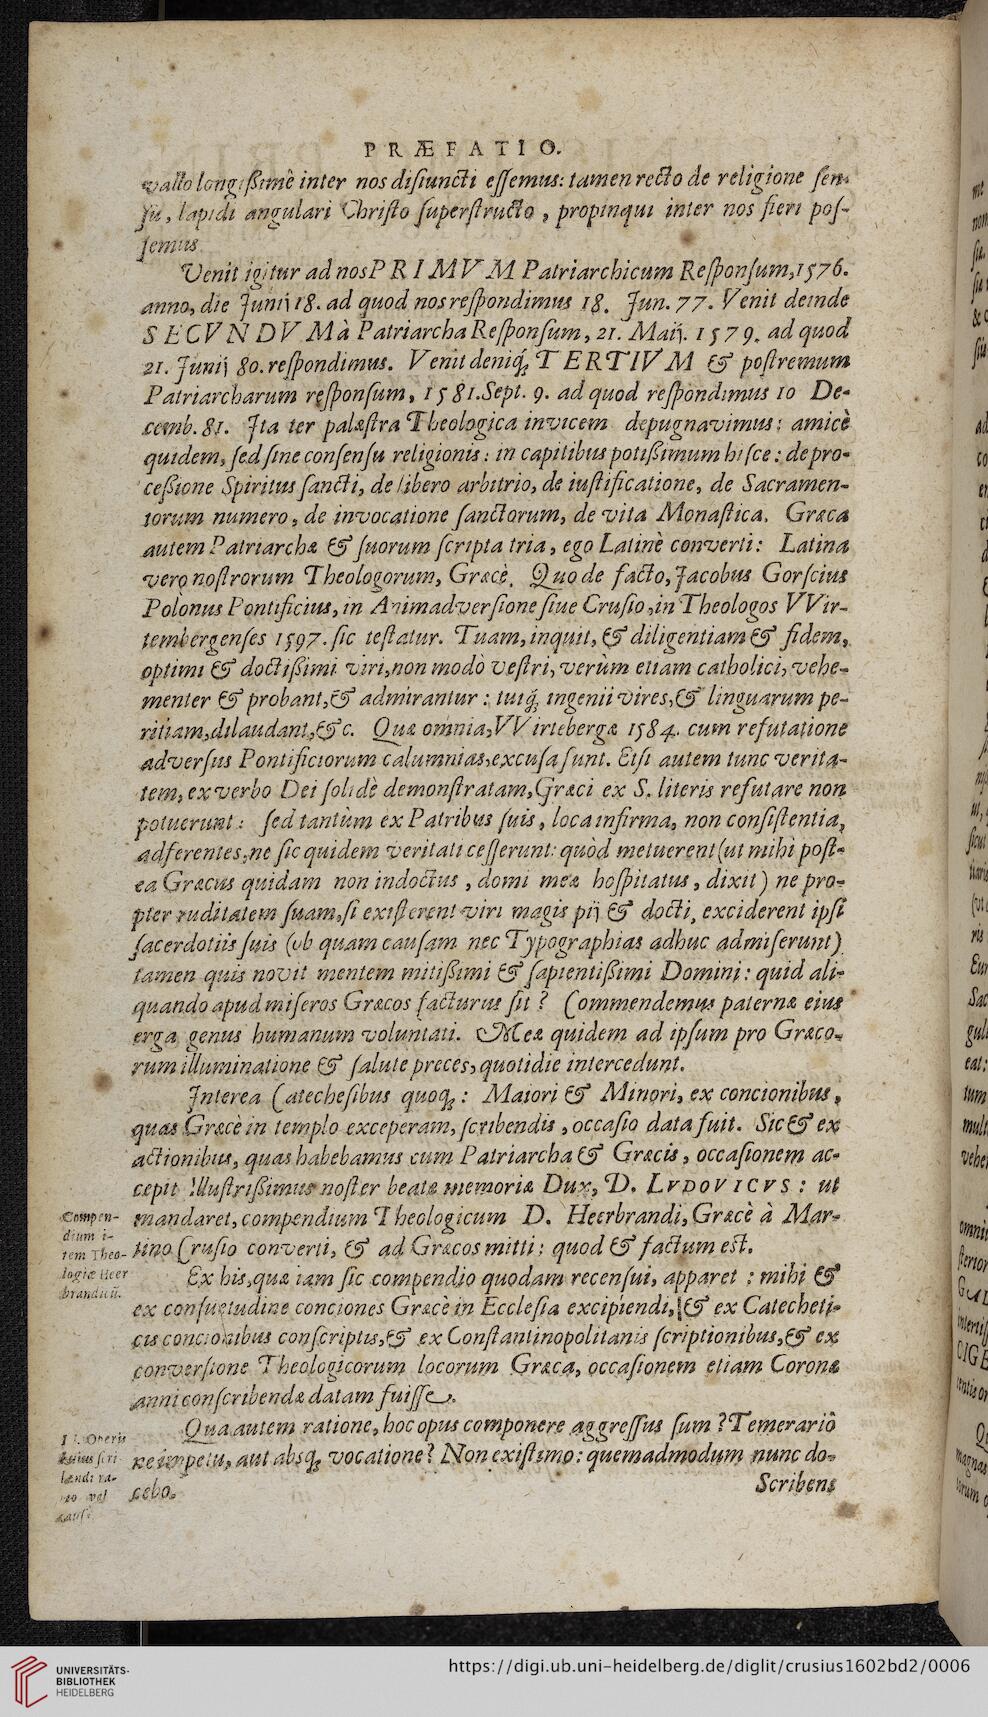 PRÆFATIO.
vallo longißimè inter nos disiuncti essemus: tamen recto de religione sen-
su, lapidi angulari Christo superstructo, propinqui inter nos fieri pos-
semus
Venit igitur ad nos PRIMVM Patriarchicum Responsum, 1576.
anno, die Junij 18. ad quod nos respondimus 18. Jun. 77. Venit deinde
SECVNDVM à Patriarcha Responsum, 21. Maij. 1579. ad quod
21. Junij 80. respondimus. Venit deniq́; TERTIVM & postremum
Patriarcharum responsum, 1581. Sept. 9. ad quod respondimus 10 De-
cemb. 81. Ita ter palæstra Theologica invicem depugnavimus: amicè
quidem, sed sine consensu religionis: in capitibus potißimum hisce: de pro-
ceßione Spiritus sancti, de libero arbitrio, de iustificatione, de Sacramen-
torum numero, de invocatione sanctorum, de vita Monastica. Græca
autem Patriarchæ & suorum scripta tria, ego Latinè converti: Latina
vero nostrorum Theologorum, Græcè. Quo de facto, Jacobus Gorscius
Polonus Pontificius, in Animadversione siue Crusio, in Theologos VVir-
tembergenses 1597. sic testatur. Tuam, inquit, & diligentiam & fidem,
optimi & doctißimi viri, non modò vestri, verùm etiam catholici, vehe-
menter & probant, & admirantur: tuiq́; ingenii vires, & linguarum pe-
ritiam, dilaudant, &c. Quæ omnia, VVirtebergæ 1584. cum refutatione
adversus Pontificiorum calumnias, excusa sunt. Etsi autem tunc verita-
tem, ex verbo Dei solidè demonstratam, Græci ex S. literis refutare non
potuerunt: sed tantùm ex Patribus suis, loca infirma, non consistentia,
adferentes, ne sic quidem veritati cesserunt: quòd metuerent (ut mihi post-
ea Græcus quidam non indoctus, domi meæ hospitatus, dixit) ne pro-
pter ruditatem suam, si existerent viri magis pij & docti, exciderent ipsi
sacerdotiis suis (ob quam causam nec Typographias adhuc admiserunt)
tamen quis novit mentem mitißimi & sapientißimi Domini: quid ali-
quando apud miseros Græcos facturus sit? Commendemus paternæ eius
erga genus humanum voluntati. Meæ quidem ad ipsum pro Græco-
rum illuminatione & salute preces, quotidie intercedunt.
Interea Catechesibus quoq; : Maiori & Minori, ex concionibus,
quas Græcè in templo exceperam, scribendis, occasio data fuit. Sic & ex
actionibus, quas habebamus cum Patriarcha & Græcis, occasionem ac-
cepit Illustrißimus noster beatæ memoriæ Dux, D. LVDOVICVS: ut
mandaret, compendium Theologicum D. Heerbrandi, Græcè à Mar-
tino Crusio converti, & ad Græcos mitti: quod & factum est.
Compen-
dium i-
tem Theo-
logiæ Heer
brandi
Ex his, quæ iam sic compendio quodam recensui, apparet: mihi &
ex consuetudine conciones Græcè in Ecclesia excipiendi, & ex Catecheti-
cis concionibus conscriptis, & ex Constantinopolitanis scriptionibus, & ex
conversione Theologicorum locorum Græca, occasionem etiam Coronæ
anni conscribendæ datam fuisse.
Qua autem ratione, hoc opus componere aggressus sum? Temerariô
ne impetu, aut absq; vocatione? Non existimo: quemadmodum nunc do-
cebo.
Operis
huius scri
bendi ra-
Scribens
UNIVERSITÄTS-
BIBLIOTHEK
HEIDELBERG
https://digi.ub.uni-heidelberg.de/diglit/crusius1602bd2/0006